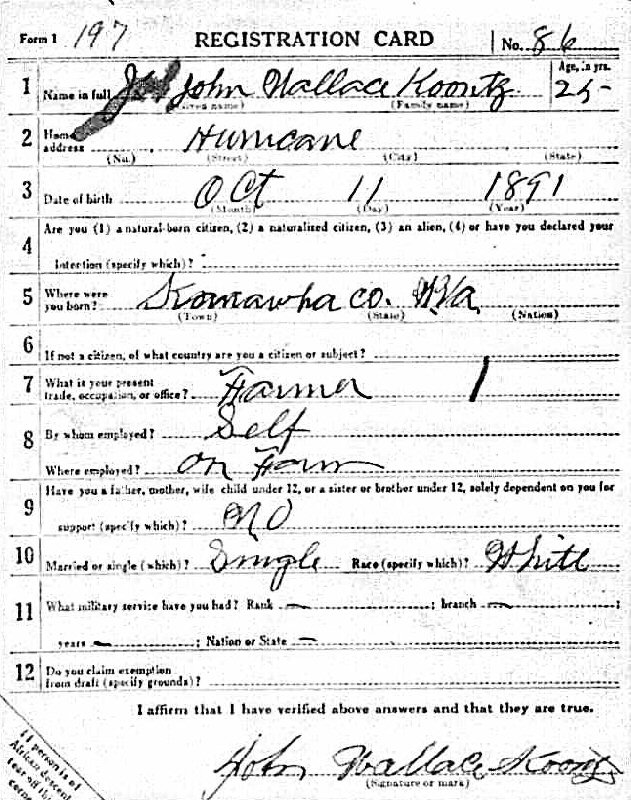 Form 1 197 REGISTRATION CARD No. 86
1 Name in full John Wallace Koontz Age, in yrs. 25
(Given name) (Family name)
2 Home address Hurricane
(No.) (Street) (City) (State)
3 Date of birth Oct 11 1891
(Month) (Day) (Year)
4 Are you (1) a natural-born citizen, (2) a naturalized citizen, (3) an alien, (4) or have you declared your
intention (specify which)?
5 Where were you born? Komawha co. W Va
(Town) (State) (Nation)
6 If not a citizen, of what country are you a citizen or subject?
7 What is your present trade, occupation, or office? Farmer 1
8 By whom employed? Self
Where employed? on Farm
9 Have you a father, mother, wife child under 12, or a sister or brother under 12, solely dependent on you for
support (specify which)? NO
10 Married or single (which)? Single Race (specify which)? White
11 What military service have you had? Rank — ; branch — ;
years — ; Nation or State —
12 Do you claim exemption
from draft (specify grounds)?
I affirm that I have verified above answers and that they are true.
John Wallace Koontz
(Signature or mark)
If person is of
African descent
tear off this
corner